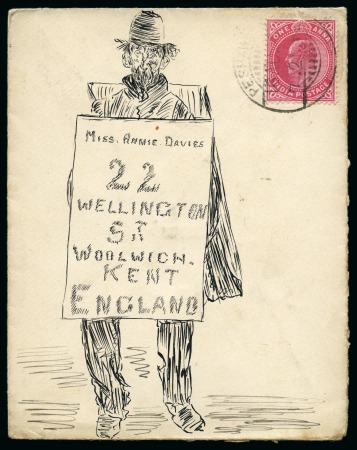 ONE ANNA
INDIA POSTAGE
MISS. ANNIE. DAVIES
22
WELLINGTON
ST
WOOLWICH.
KENT
ENGLAND